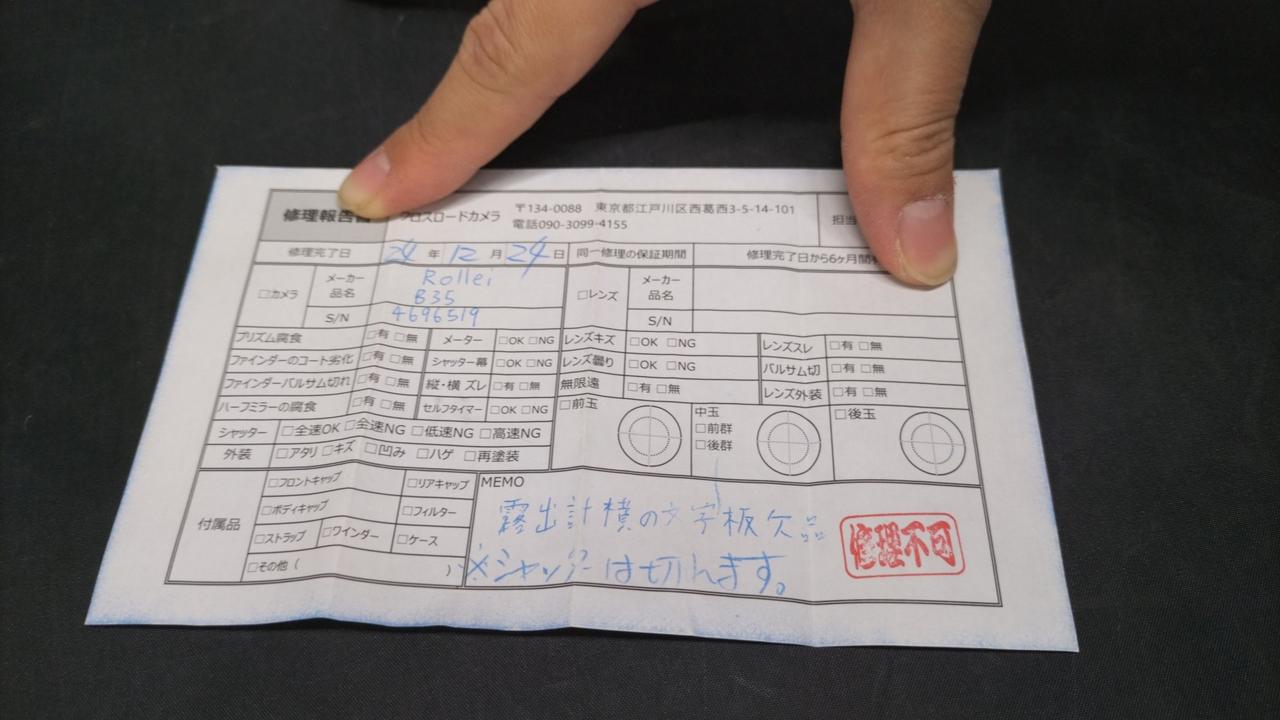 修理報告 クロスロードカメラ 〒134-0088 東京都江戸川区西葛西3-5-14-101 担当
電話090-3099-4155
修理完了日 24年12月24日 同一修理の保証期間 修理完了日から6ヶ月間
□カメラ メーカー品名 Rollei B35 □レンズ メーカー品名
S/N 4696519 S/N
プリズム腐食 □有 □無 メーター □OK □NG レンズキズ □OK □NG レンズスレ □有 □無
ファインダーのコート劣化 □有 □無 シャッター幕 □OK □NG レンズ曇り □OK □NG バルサム切 □有 □無
ファインダーバルサム切れ □有 □無 縦・横 ズレ □有 □無 無限遠 □有 □無 レンズ外装 □有 □無
ハーフミラーの腐食 □有 □無 セルフタイマー □OK □NG □前玉 中玉 □前群 □後群 □後玉
シャッター □全速OK □全速NG □低速NG □高速NG
外装 □アタリ □キズ □凹み □ハゲ □再塗装
付属品 □フロントキャップ □リアキャップ MEMO
□ボディキャップ □フィルター
□ストラップ □ワインダー □ケース
□その他 ( )
露出計横の文字板欠品
※シャッターは切れます。
修理不可